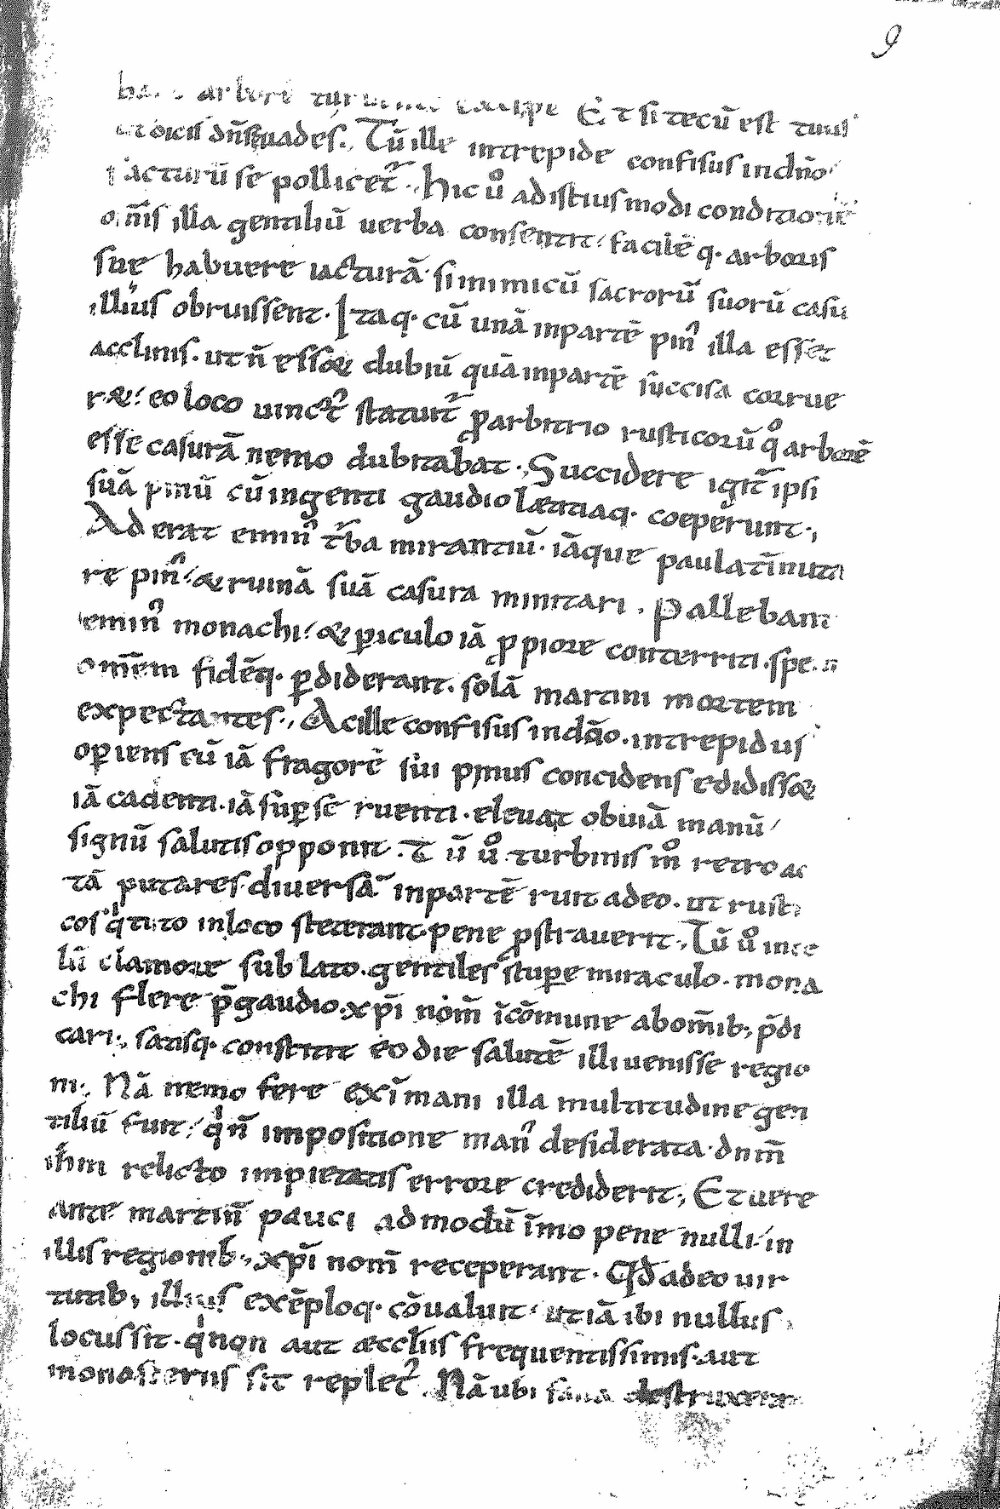 9
arbore Et si tecū est tuus
dicis dn̄s euades., Tū ille intrepide confisus in dn̄o
facturū se pollicet᷑., Hic uͦ ad istius modi conditionē
om̄s illa gentiliū uerba consensit / facilē q· arboris
sue habuere iacturā· si inimicū sacrorū suorū casu
illius obruissent· Itaq· cū unā in partē pin᷒ illa esset
acclinis· ut n̄ess& dubiū quā in partē succisa corrue
r&/ eo loco uinct᷒ statuit᷑ ꝑ arbitrio rusticorū qͦ arborē
esse casurā nemo dubitabat., Succidere igit᷑ ipsi
suā pinū cū ingenti gaudio lætitiaq· coeperunt.,
Ad erat emin᷒ t᷑ba mirantiū· iāque paulatī nuta
re pin᷒/ & ruinā suā casura minitari . Pallebant
emin᷒ monachi / & ꝑiculo iā ꝓpiore conterriti · spe
om̄em fidēq· ꝑdiderant· solā martini mortem
expectantes., Ac ille confisus in dn̄o · intrepidus
opꝑiens cū iā fragorē sui pinus concidens edidiss&
iā cadenti· iā suꝑ se ruenti· eleuat obuiā manū/
signū salutis opponit . Tū uͦ· turbinis mͦ retro ac
tā putares· diuersā in partē ruit adeo · ut rusti
cos qͥ tuto in loco steterant· pene ꝓstrauerit., Tū uͦ in ce
lū clamore sublato · gentiles stupere miraculo · mona
chi flere p̄ gaudio · xp̄i nom̄ īcōmune ab om̄ib; p̄di
cari., satisq· constitit eo die salutē illi uenisse regio
ni· Nā nemo fere ex īmani illa multitudine gen
tiliū fuit/ qͥ n̄ impositione man᷒ desiderata· dnm̄
ih̄m relicto impietatis errore crediderit., Et uere
ante martin̄ pauci admodū īmo pene nulli/ in
illis regionib; xp̄i nom̄ receperant· Qd̄ adeo uir
tutib; illius exēploq· cōualuit· ut iā ibi nullus
locus sit · qͥ non aut æccl̄iis frequentissimis· aut
monasteriis sit replet᷒ . Nā ubi fana destruxerat